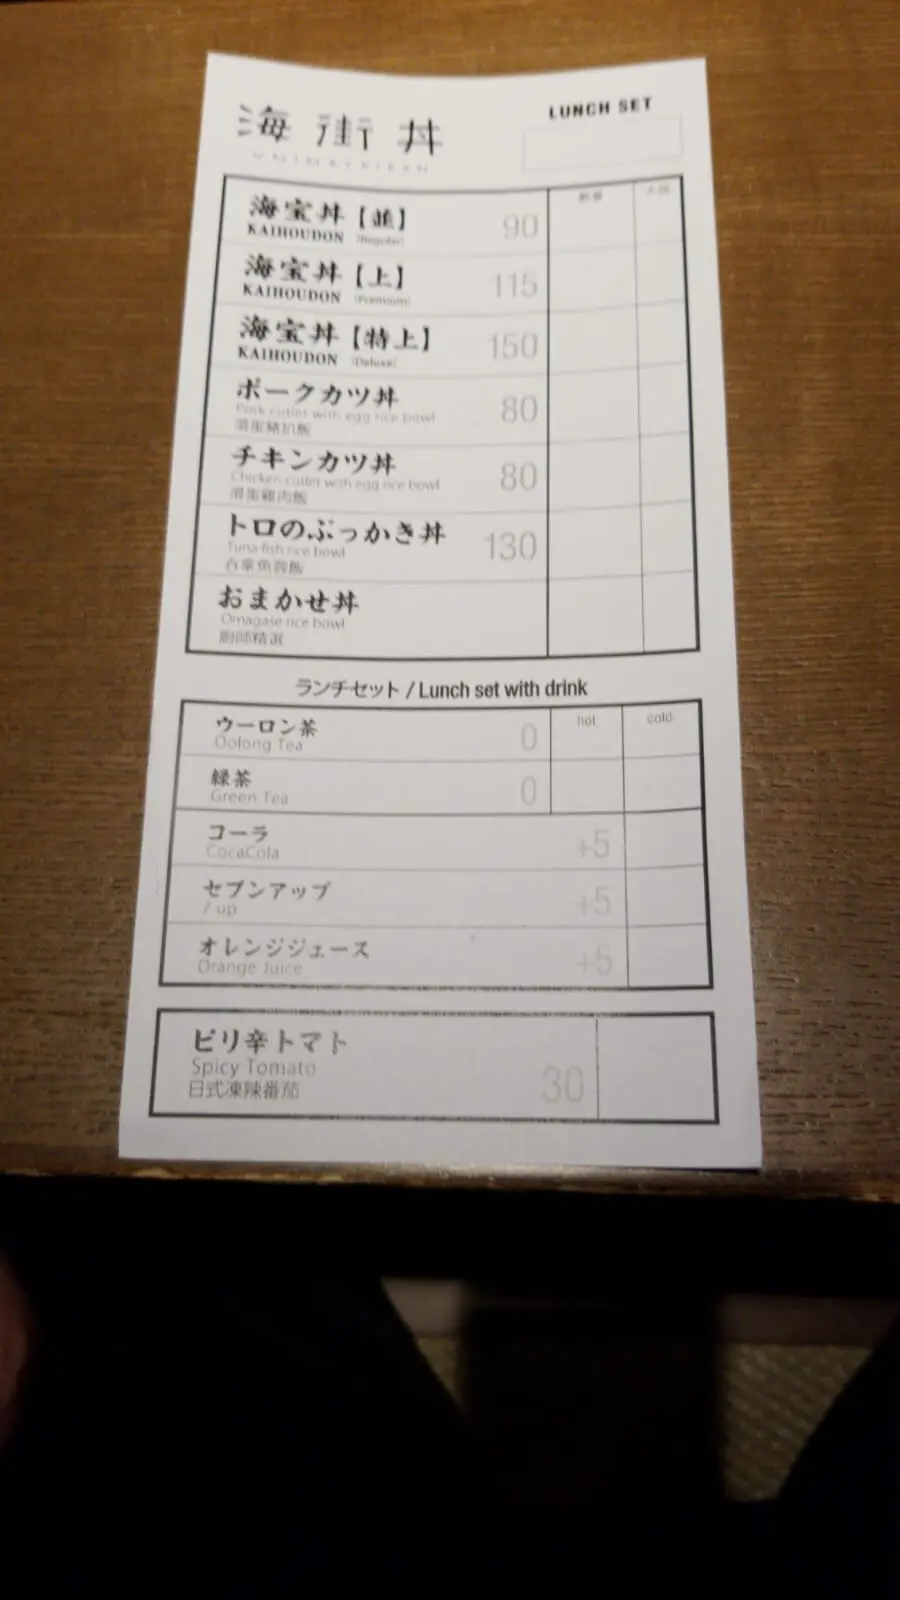 海街丼
LUNCH SET
海宝丼【並】
KAIHOUDON (Regular)
90
海宝丼【上】
KAIHOUDON (Premium)
115
海宝丼【特上】
KAIHOUDON (Deluxe)
150
ポークカツ丼
Pork cutlet with egg rice bowl
滑蛋豬扒飯
80
チキンカツ丼
Chicken cutlet with egg rice bowl
滑蛋雞肉飯
80
トロのぶっかき丼
Tuna fish rice bowl
吞拿魚蓉飯
130
おまかせ丼
Omagase rice bowl
廚師精選
ランチセット / Lunch set with drink
hot
cold
ウーロン茶
Oolong Tea
0
緑茶
Green Tea
0
コーラ
CocaCola
+5
セブンアップ
7 up
+5
オレンジジュース
Orange Juice
+5
ピリ辛トマト
Spicy Tomato
日式凍辣番茄
30